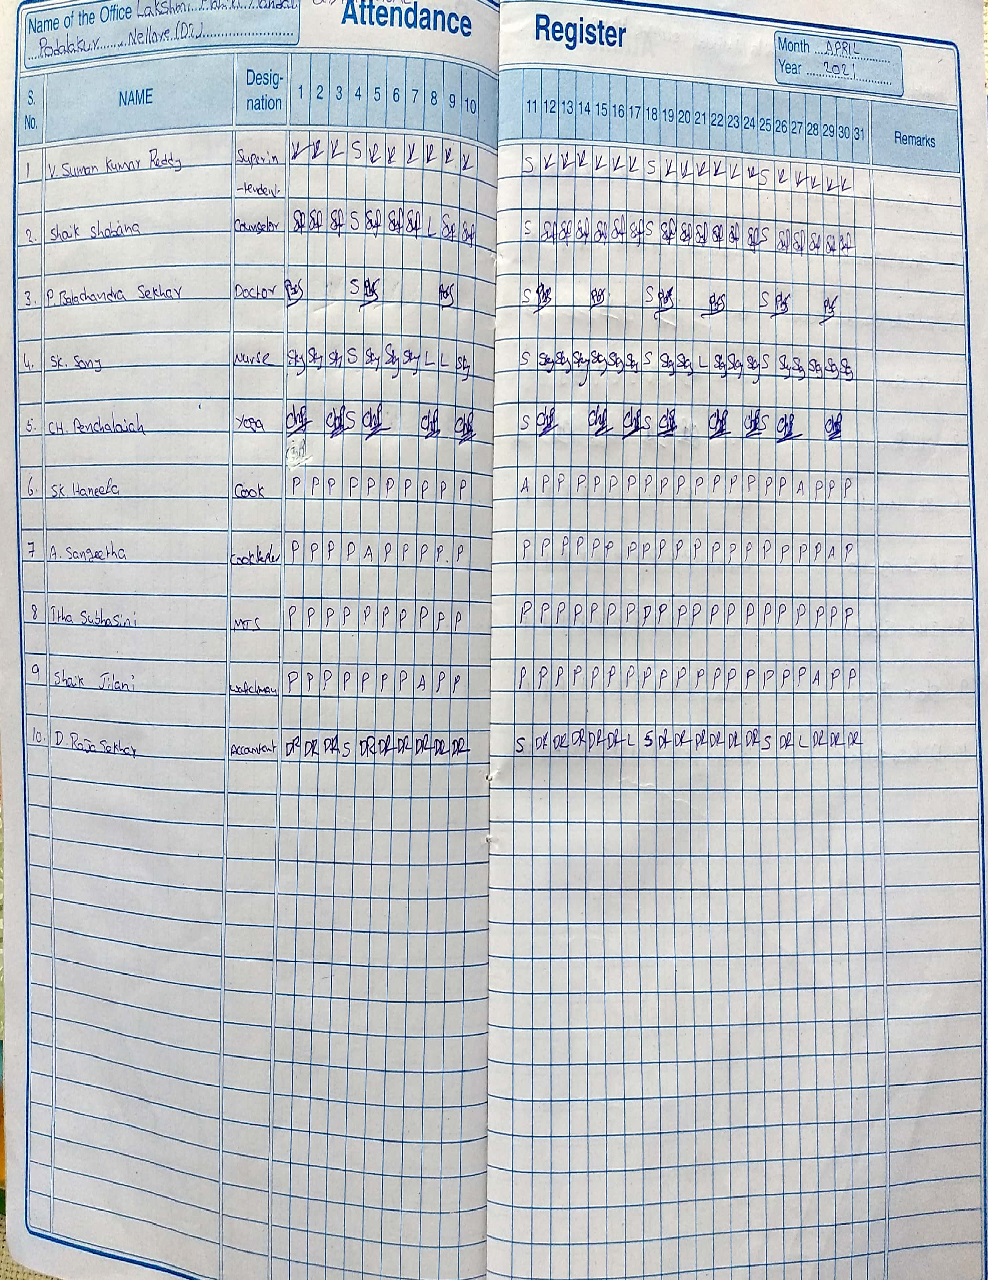 Attendance Register
Name of the Office Lakshmi
Podalakur Nellore (Dt)
Month APRIL
Year 2021
S. No. NAME Desig-nation 1 2 3 4 5 6 7 8 9 10 11 12 13 14 15 16 17 18 19 20 21 22 23 24 25 26 27 28 29 30 31 Remarks
1 V. Suman Kumar Reddy Superin
-tendent S S S S
2. Shaik Shabana Counselor S L S S S
3. P. Balachandra Sekhar Doctor S S S S
4. SK. Sony Nurse S L L S S L S
5. CH. Penchalaiah Yoga S S S S
6. SK Haneefa Cook P P P P P P P P P P A P P P P P P P P P P P P P P P A P P P
7 A. Sangeetha P P P P A P P P P P P P P P P P P P P P P P P P P P P P A P
8 Itha Subhasini MTS P P P P P P P P P P P P P P P P P P P P P P P P P P P P P P
9 Shaik Jilani watchman P P P P P P P A P P P P P P P P P P P P P P P P P P P A P P
10. D. Raja Sekhar Accountant DR DR DR S DR DR DR DR DR DR S DR DR DR DR DR L S DR DR DR DR DR DR S DR L DR DR DR